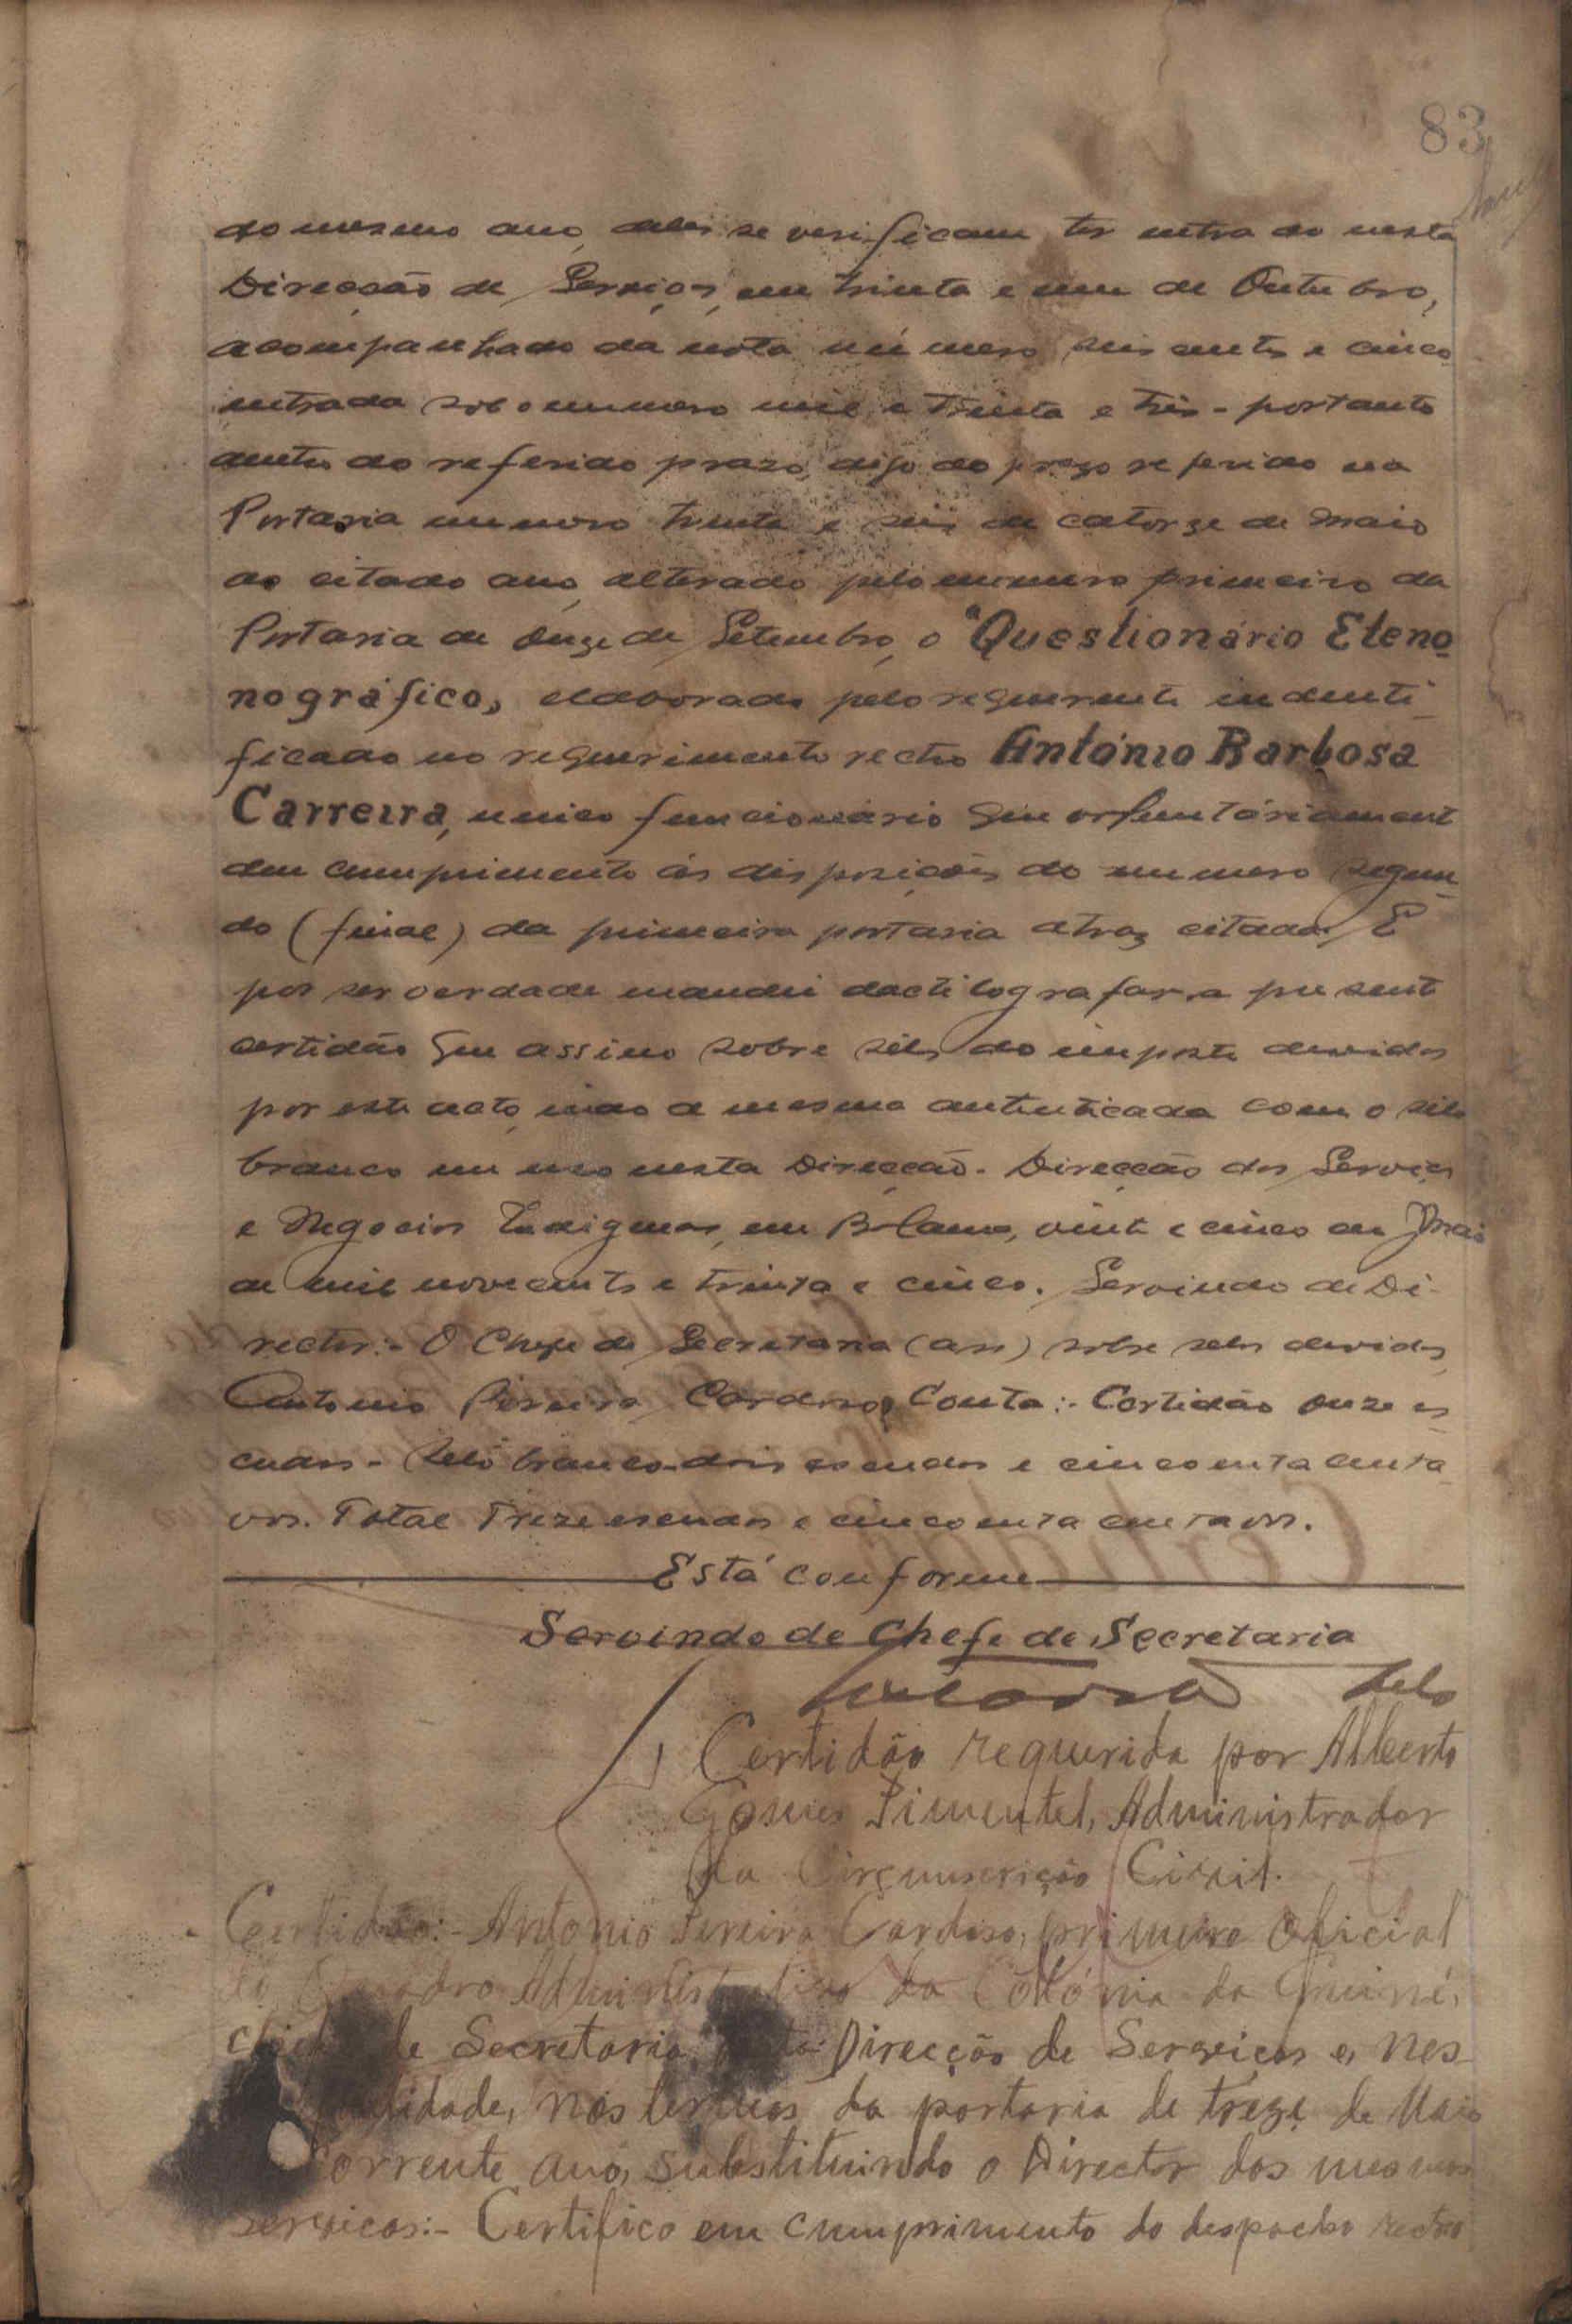 83
do mesmo ano, deles se verificam ter entrado nesta
Direcção de Serviços, em trinta e um de Outubro,
acompanhado da nota número seiscentos e cinco
entrada sob o numero mil e trinta e três - portanto
dentro do referido prazo, digo do prazo referido na
Portaria numero trinta e seis de catorze de Maio
do citado ano, alterado pelo numero primeiro da
Portaria de onze de Setembro, o "Questionário Eteno
nográfico, elaborado pelo requerente indenti-
ficado no requerimento recto António Barbosa
Carreira, unico funcionário que
deu cumprimento ás disposições do numero segun-
do (final) da primeira portaria atraz citada. E
por ser verdade mandei dactilografar a present
certidão que assino sobre selos do imposto devidos
por este acto, indo a mesma autenticada com o selo
branco em uso nesta Direcção. Direcção dos Serviços
e Negocios Indigenas, em Bolama, vinte e cinco de Maio
de mil novecentos e trinta e cinco. Servindo de Di-
rector:- O Chefe de Secretaria (ass) sobre selos devidos
Antonio Pereira Cardoso, Conta:- Certidão onze es
cudos - Selo branco dois escudos e cincoenta centa
vos. Total Treze escudos e cincoenta centavos.
Está conforme
Servindo de Chefe de Secretaria
Certidão requerida por Alberto
Gomes Pimentel, Administrador
da Circunscrição Civil.
Certidão:- Antonio Pereira Cardoso, primeiro oficial
do Quadro Administrativo da Colónia da Guiné,
chefe de Secretaria, Direcção de Serviços e, nes-
nos termos da portaria de treze de Maio
corrente ano, substituindo o Director dos mesmos
serviços:- Certifico em cumprimento do despacho recto